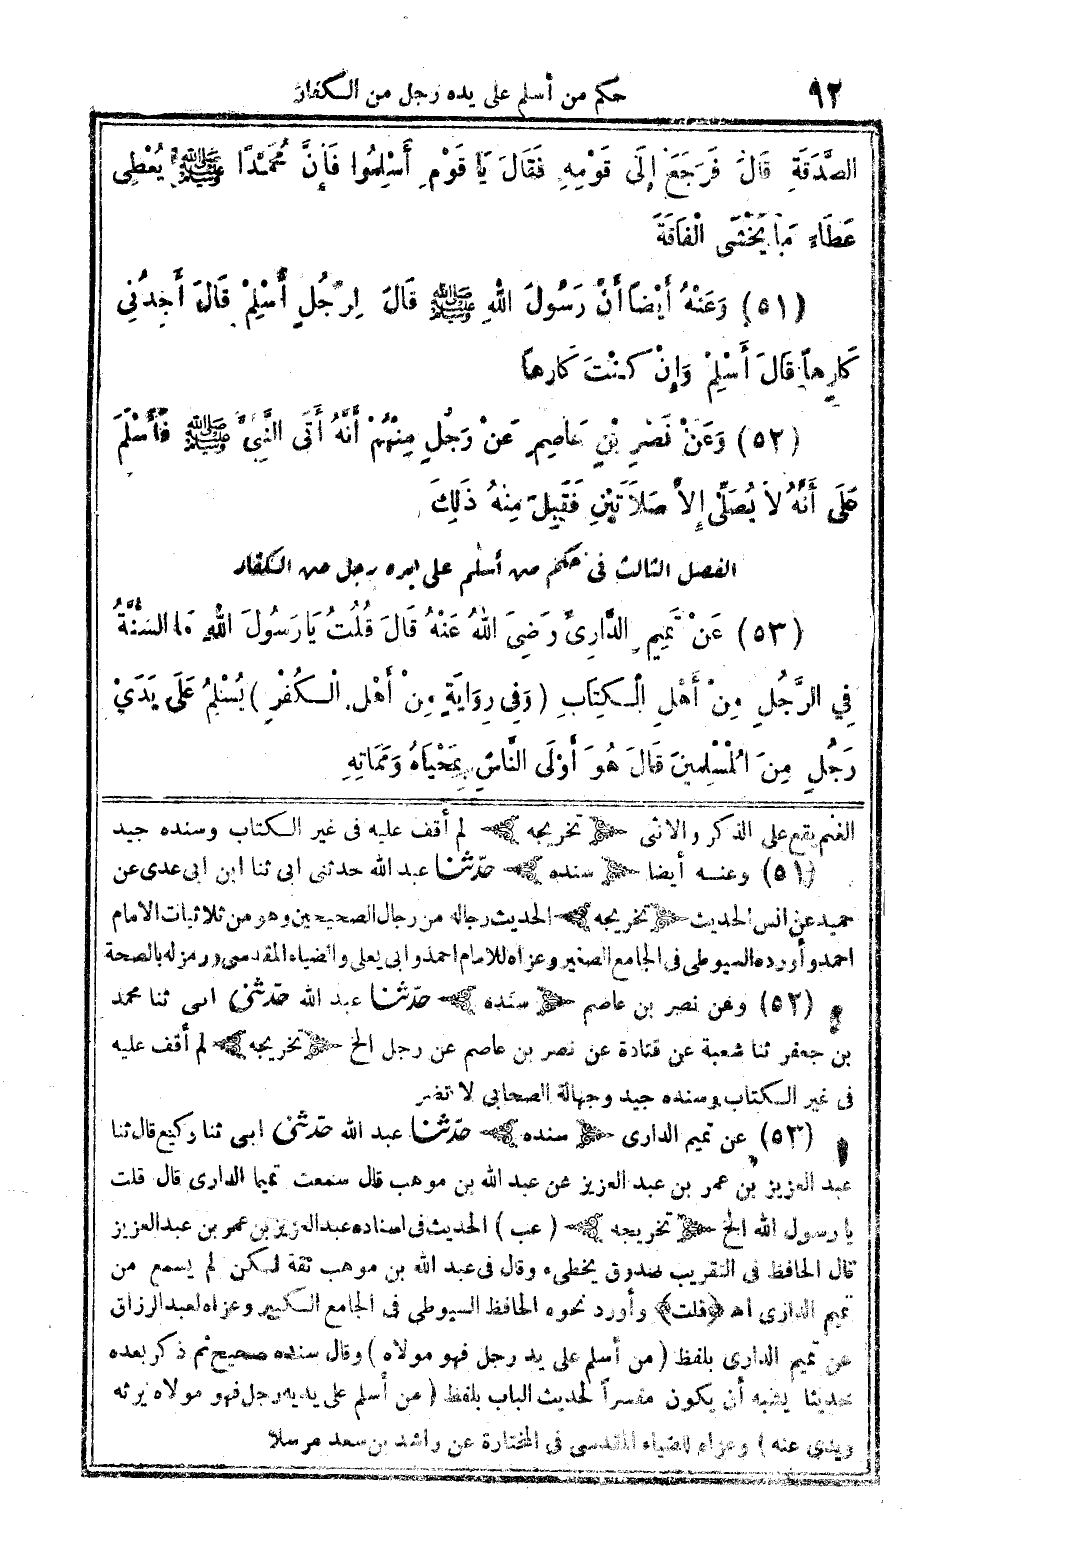 ٩٢ حكم من أسلم على يده رجل من الكفار
الصَّدَقَةِ قَالَ فَرَجَعَ إِلَى قَوْمِهِ فَقَالَ يَا قَوْمِ أَسْلِمُوا فَإِنَّ مُحَمَّدًا ﷺ يُعْطِى
عَطَاءً مَا يَخْشَى الْفَاقَةَ
(٥١) وَعَنْهُ أَيْضًا أَنَّ رَسُولَ اللهِ ﷺ قَالَ لِرَجُلٍ أَسْلِمْ قَالَ أَجِدُنِى
كَارِهاً قَالَ أَسْلِمْ وَإِنْ كُنْتَ كَارِهاً
(٥٢) وَعَنْ نَصْرِ بْنِ عَاصِمٍ عَنْ رَجُلٍ مِنْهُمْ أَنَّهُ أَتَى النَّبِىَّ ﷺ فَأَسْلَمَ
عَلَى أَنَّهُ لَا يُصَلِّى إِلاَّ صَلاَتَيْنِ فَقَبِلَ مِنْهُ ذَلِكَ
الفصل الثالث فى حكم من أسلم على يده رجل من الكفار
(٥٣) عَنْ تَمِيمٍ الدَّارِىِّ رَضِىَ اللهُ عَنْهُ قَالَ قُلْتُ يَا رَسُولَ اللهِ مَا السُّنَّةُ
فِى الرَّجُلِ مِنْ أَهْلِ الْكِتَابِ (وَفِى رِوَايَةٍ مِنْ أَهْلِ الْكُفْرِ) يُسْلِمُ عَلَى يَدَىْ
رَجُلٍ مِنَ الْمُسْلِمِينَ قَالَ هُوَ أَوْلَى النَّاسِ بِمَحْيَاهُ وَمَمَاتِهِ
الغنم يقع على الذكر والانثى ﴿تخريجه﴾ لم أقف عليه فى غير الكتاب وسنده جيد
(٥١) وعنه أيضا ﴿سنده﴾ حدّثنا عبد الله حدثنى ابى ثنا ابن ابى عدى عن
حميد عن انس الحديث ﴿تخريجه﴾ الحديث رجاله من رجال الصحيحين وهو من ثلاثيات الامام
احمد وأورده السيوطى فى الجامع الصغير وعزاه للامام احمد وابى يعلى والضياء المقدسى ورمز له بالصحة
(٥٢) وعن نصر بن عاصم ﴿سنده﴾ حدّثنا عبد الله حدّثنى ابى ثنا محمد
بن جعفر ثنا شعبة عن قتادة عن نصر بن عاصم عن رجل الخ ﴿تخريجه﴾ لم أقف عليه
فى غير الكتاب وسنده جيد وجهالة الصحابى لا تضر
(٥٣) عن تميم الدارى ﴿سنده﴾ حدّثنا عبد الله حدّثنى ابى ثنا وكيع قال ثنا
عبد العزيز بن عمر بن عبد العزيز عن عبد الله بن موهب قال سمعت تميما الدارى قال قلت
يا رسول الله الخ ﴿تخريجه﴾ (عب) الحديث فى اسناده عبد العزيز بن عمر بن عبد العزيز
قال الحافظ فى التقريب صدوق يخطىء وقال فى عبد الله بن موهب ثقة لكن لم يسمع من
تميم الدارى اه ﴿قلت﴾ وأورد نحوه الحافظ السيوطى فى الجامع الكبير وعزاه لعبد الرزاق
عن تميم الدارى بلفظ (من أسلم على يد رجل فهو مولاه) وقال سنده صحيح ثم ذكر بعده
حديثا يشبه أن يكون مفسراً لحديث الباب بلفظ (من أسلم على يديه رجل فهو مولاه يرثه
ويدى عنه) وعزاه للضياء المقدسى فى المختارة عن راشد بن سعد مرسلا